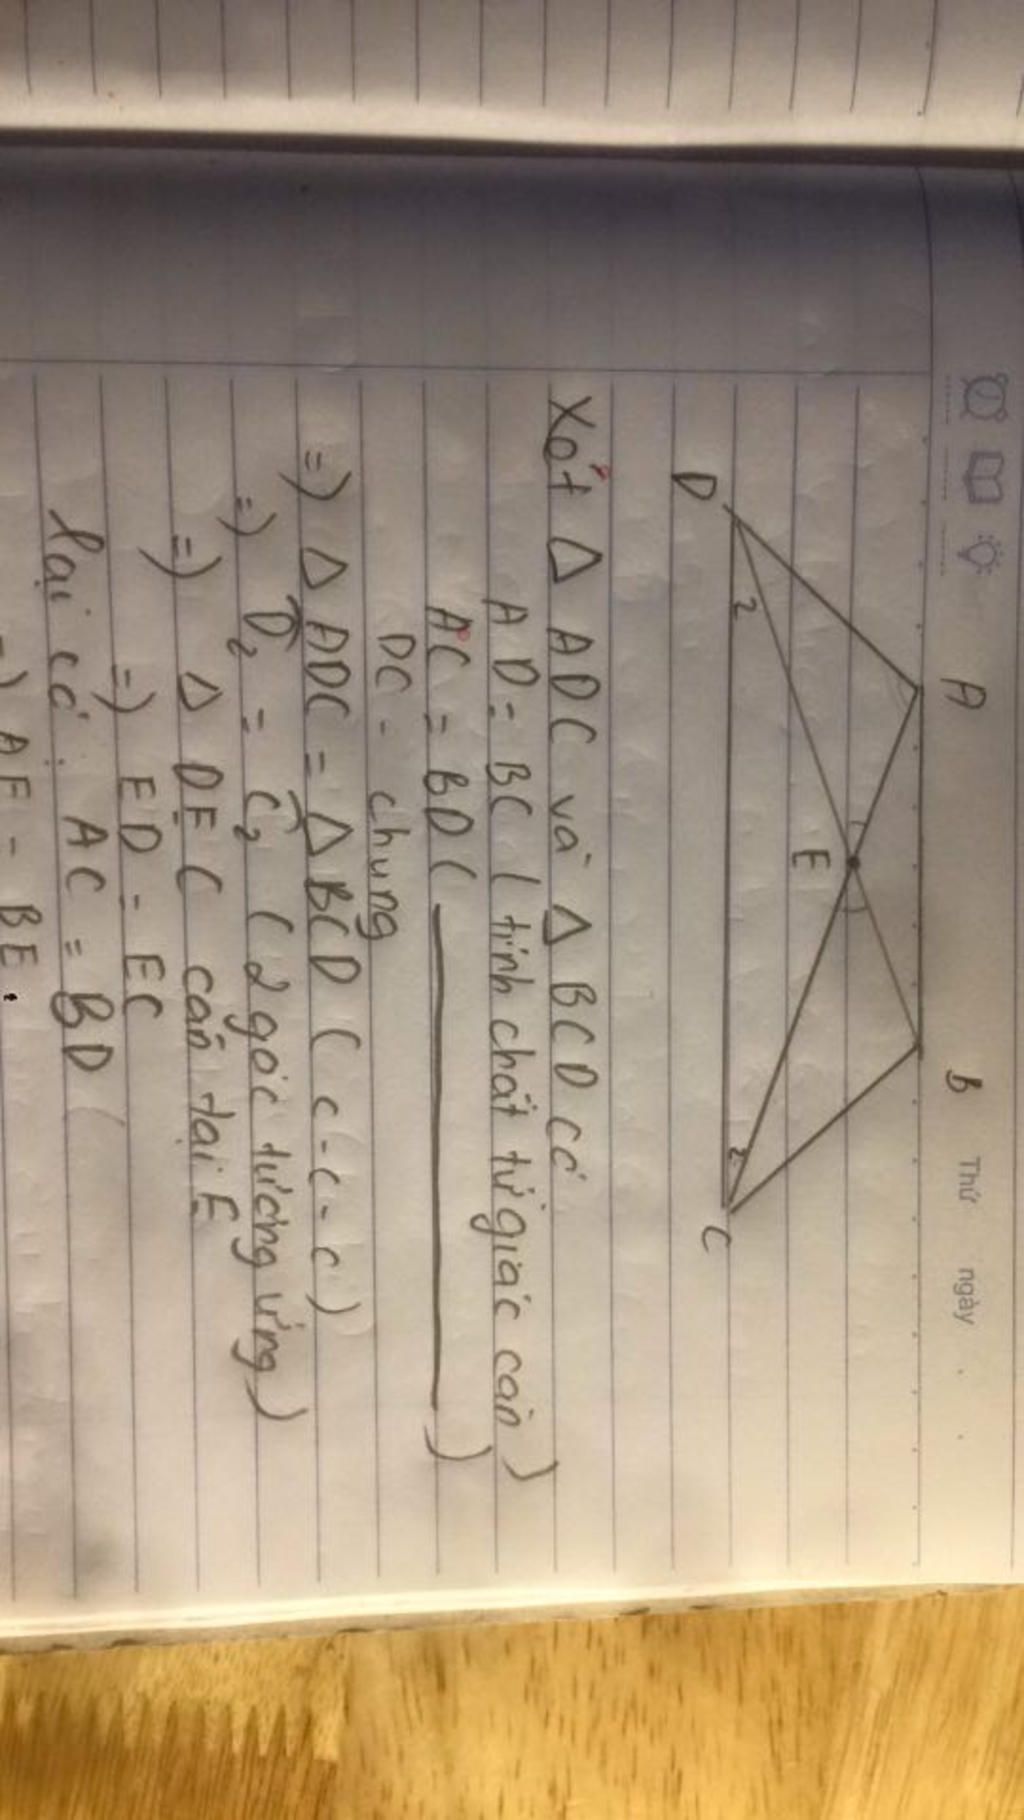 Thứ ngày
A B
E
D 2 2 C
Xét Δ ADC và Δ BCD có
AD = BC ( tính chất tứ giác cân )
AC = BD ( )
DC - chung
=) Δ ADC = Δ BCD ( c - c - c )
=) D̂₂ = Ĉ₂ ( 2 góc tương ứng )
=) Δ DEC cân tại E
=) ED = EC
lại có : AC = BD
=) AE = BE.